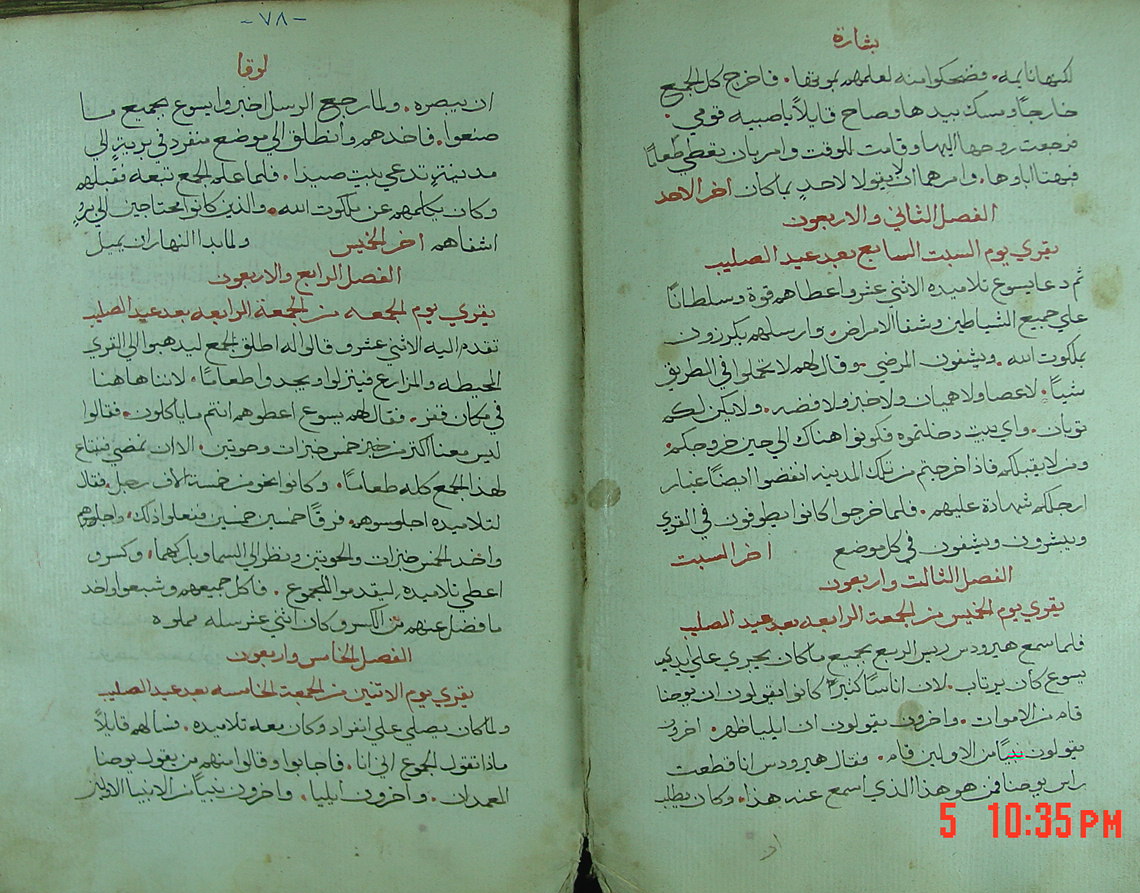 بشارة
لكنها نايمه. فضحكوا منه لعلمهم بموتها. فاخرج كل الجمع
خارجًا ومسك بيدها وصاح قايلاً يا صبيه قومي.
فرجعت روحها اليها وقامت للوقت وامر بان يعطي طعامًا
فبهتا ابوها. وامرهما ان لا يقولا لاحدٍ بما كان اخر الاحد
الفصل الثاني والاربعون
يقري يوم السبت السابع بعد عيد الصليب
ثم دعا يسوع تلاميذه الاثني عشر واعطاهم قوة وسلطانًا
علي جميع الشياطين وشفا الامراض. وارسلهم يكرزون
بملكوت الله. ويشفون المرضي. وقال لهم لا تحملوا في الطريق
شيًا. لا عصا ولا هميان ولا خبز ولا فضه. ولا يكن لكم
ثوبان. واي بيت دخلتموه فكونوا هناك الي حين خروجكم.
ومن لا يقبلكم فاذا خرجتم من تلك المدينه انفضوا ايضًا غبار
ارجلكم شهادة عليهم. فلما خرجوا كانوا يطوفون في القري
ويبشرون ويشفون في كل موضع اخر السبت
الفصل الثالت واربعون
يقري يوم الخميس من الجمعة الرابعه بعد عيد الصليب
فلما سمع هيرودس ريس الربع بجميع ما كان يجري علي يدي
يسوع كان يرتاب. لان اناسًا كثيرًا كانوا يقولون ان يوحنا
قام من الاموات. واخرون يقولون ان ايليا ظهر. اخرون
يقولون نبيًا من الاولين قام. فقال هيرودس انا قطعت
راس يوحنا فمن هو هذا الذي اسمع عنه هذا. وكان يطلب
-٧٨-
لوقا
ان يبصره. ولما رجع الرسل اخبروا يسوع بجميع ما
صنعوا. فاخذهم وانطلق الي موضع منفرد في بريةٍ الي
مدينةٍ تدعي بيت صيدا. فلما علم الجمع تبعه فقبلهم
وكان يكلمهم عن ملكوت الله. والذين كانوا محتاجين الي بروٍ
اشفاهم اخر الخميس ولما بدا النهار ان يميل
الفصل الرابع والاربعون
يقري يوم الجمعه من الجمعة الرابعه بعد عيد الصليب
تقدم اليه الاثني عشر وقالوا له اطلق الجمع ليذهبوا الي القري
المحيطه والمزارع فينزلوا ويجدوا طعامًا. لاننا هاهنا
في مكان قفر. فقال لهم يسوع اعطوهم انتم ما ياكلون. فقالوا
ليس معنا اكتر من خمس خبزات وحوتين. الا ان نمضي فنبتاع
لهذا الجمع كله طعامًا. وكانوا نحو من خمسة الاف رجل. فقال
لتلاميذه اجلسوهم فرقًا خمسين خمسين ففعلوا ذلك. واجلسوهم
واخذ الخمس خبزات والحوتين ونظر الي السما وباركهما. وكسر و
اعطي تلاميذه ليقدموا للجموع. فاكل جميعهم وشبعوا واخذ
ما فضل عنهم من الكسر وكان اثني عشر سله مملوه
الفصل الخامس واربعون
يقري يوم الاتنين من الجمعة الخامسه بعد عيد الصليب
ولما كان يصلي علي انفراد وكان معه تلاميذه. فسالهم قايلاً
ماذا تقول الجموع اني انا. فاجابوا وقالوا منهم من يقول يوحنا
المعمدان. واخرون ايليا. واخرون نبيًا من الانبيا الاولين
5 10:35 PM